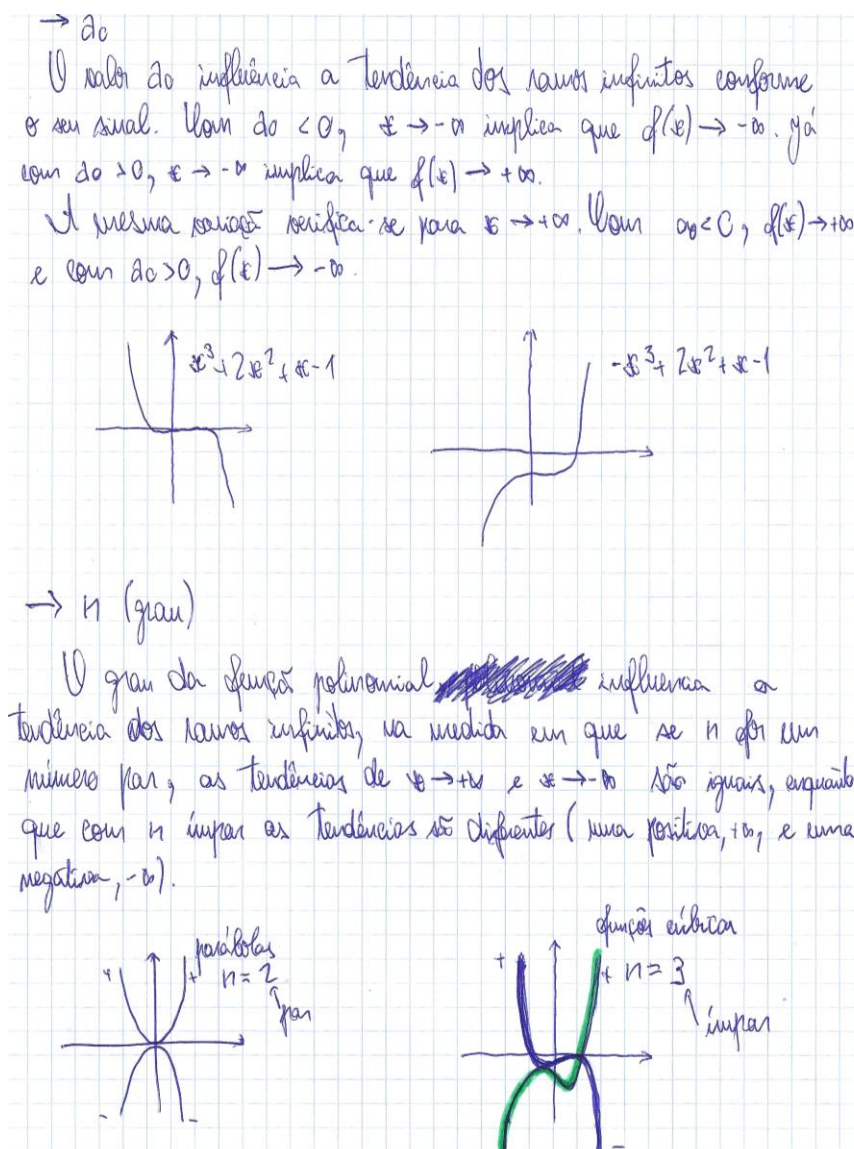 → a₀
O valor a₀ influência a tendência dos ramos infinitos conforme
o seu sinal. Com a₀ < 0, x → -∞ implica que f(x) → -∞. Já
com a₀ > 0, x → -∞ implica que f(x) → +∞.
A mesma variaçã verifica-se para x → +∞. Com a₀ < 0, f(x) → +∞
e com a₀ > 0, f(x) → -∞.
x³ + 2x² + x - 1
-x³ + 2x² + x - 1
→ n (grau)
O grau da funçã polinomial influencia a
tendência dos ramos infinitos, na medida em que se n for um
número par, as tendências de x → +∞ e x → -∞ são iguais, enquanto
que com n ímpar as tendências são diferentes (uma positiva, +∞, e uma
negativa, -∞).
parábolas
+ + n = 2
par
- -
funções cúbicas
+ + n = 3
ímpar
-